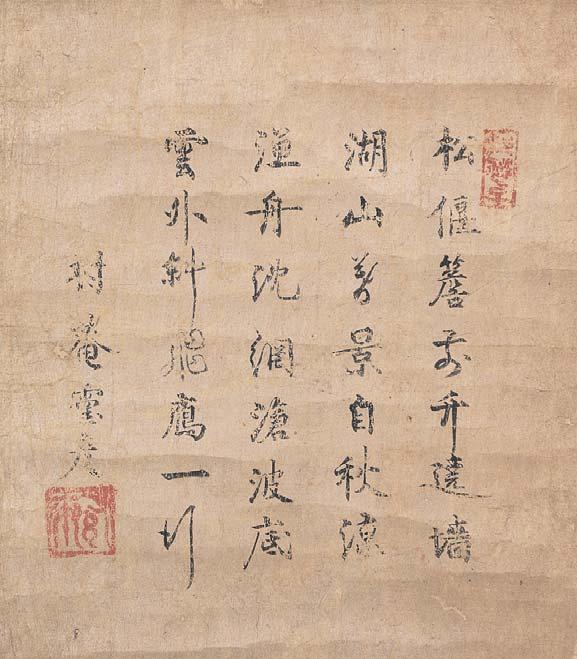 松偃簷前竹遶墻
湖山萬景自秋涼
漁舟沈網滄波底
雲外斜飛鴈一行
村菴靈彦